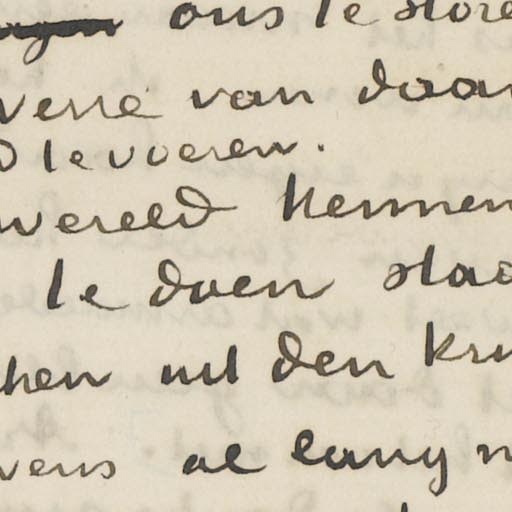 ons te store
verre van daar
te voeren.
wereld kennen
te doen staa
uit den kru
al lang n